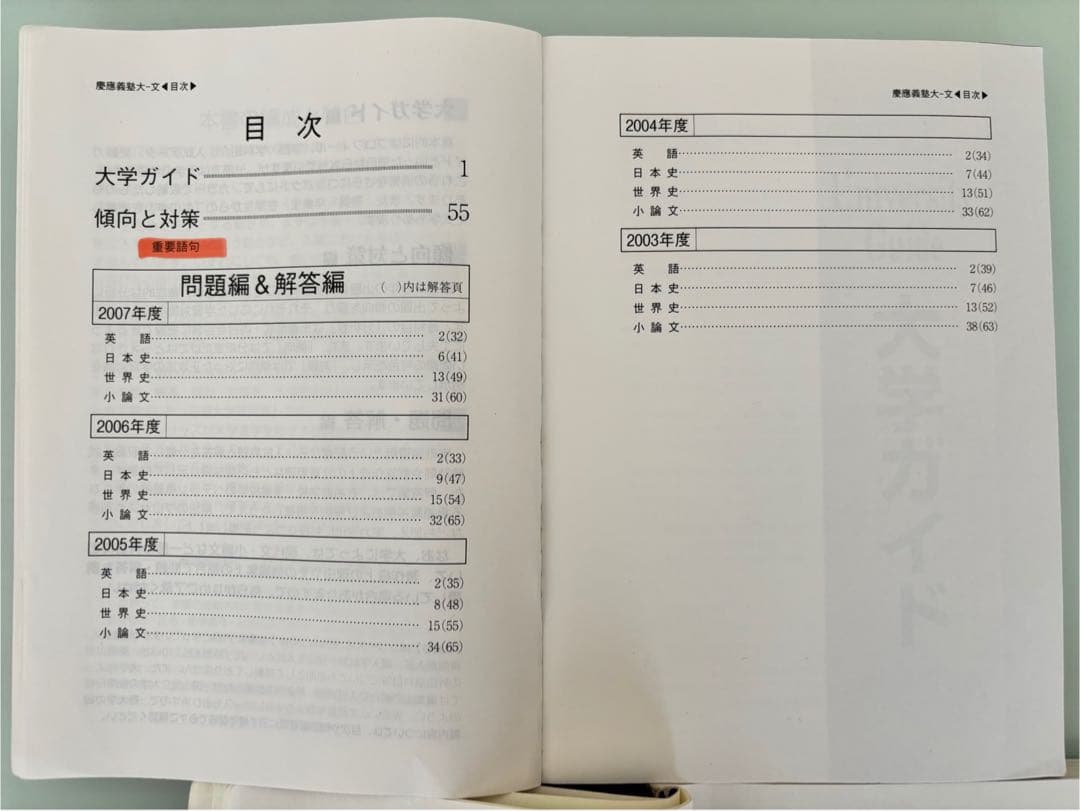 慶應義塾大-文◀目次▶
目 次
大学ガイド 1
傾向と対策 55
重要語句
問題編&解答編 ( )内は解答頁
2007年度
英 語 2(32)
日本史 6(41)
世界史 13(49)
小論文 31(60)
2006年度
英 語 2(33)
日本史 9(47)
世界史 15(54)
小論文 32(65)
2005年度
英 語 2(35)
日本史 8(48)
世界史 15(55)
小論文 34(65)
慶應義塾大-文◀目次▶
2004年度
英 語 2(34)
日本史 7(44)
世界史 13(51)
小論文 33(62)
2003年度
英 語 2(39)
日本史 7(46)
世界史 13(52)
小論文 38(63)
大学ガイド